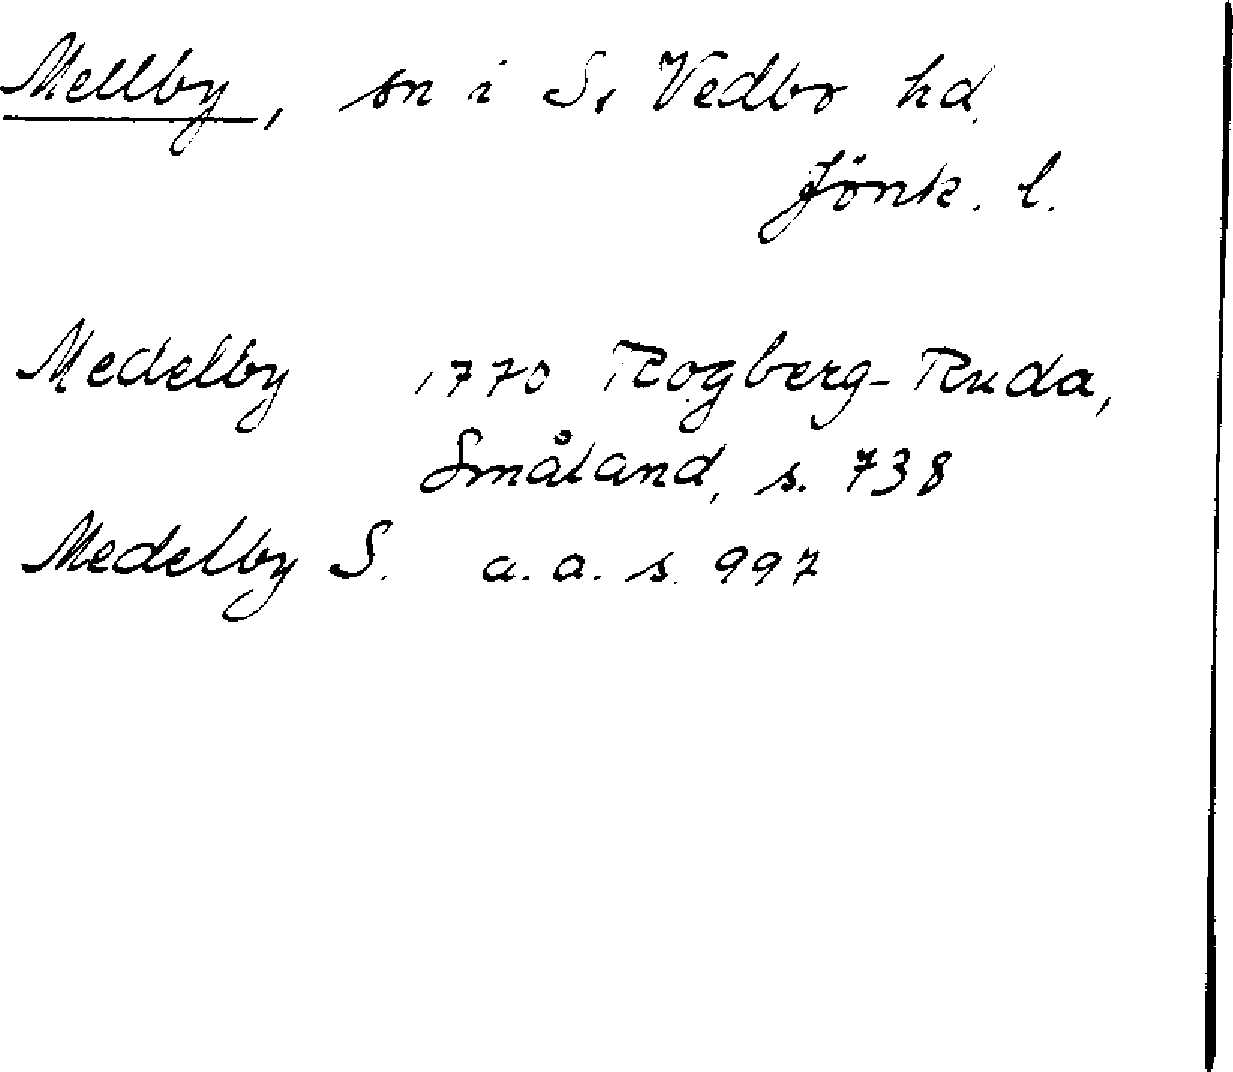 Mellby, sn i S. Vedbo hd.
Jönk. l.
Medelby 1770 Rogberg-Ruda,
Småland, s. 738
Medelby S. a. a. s. 997